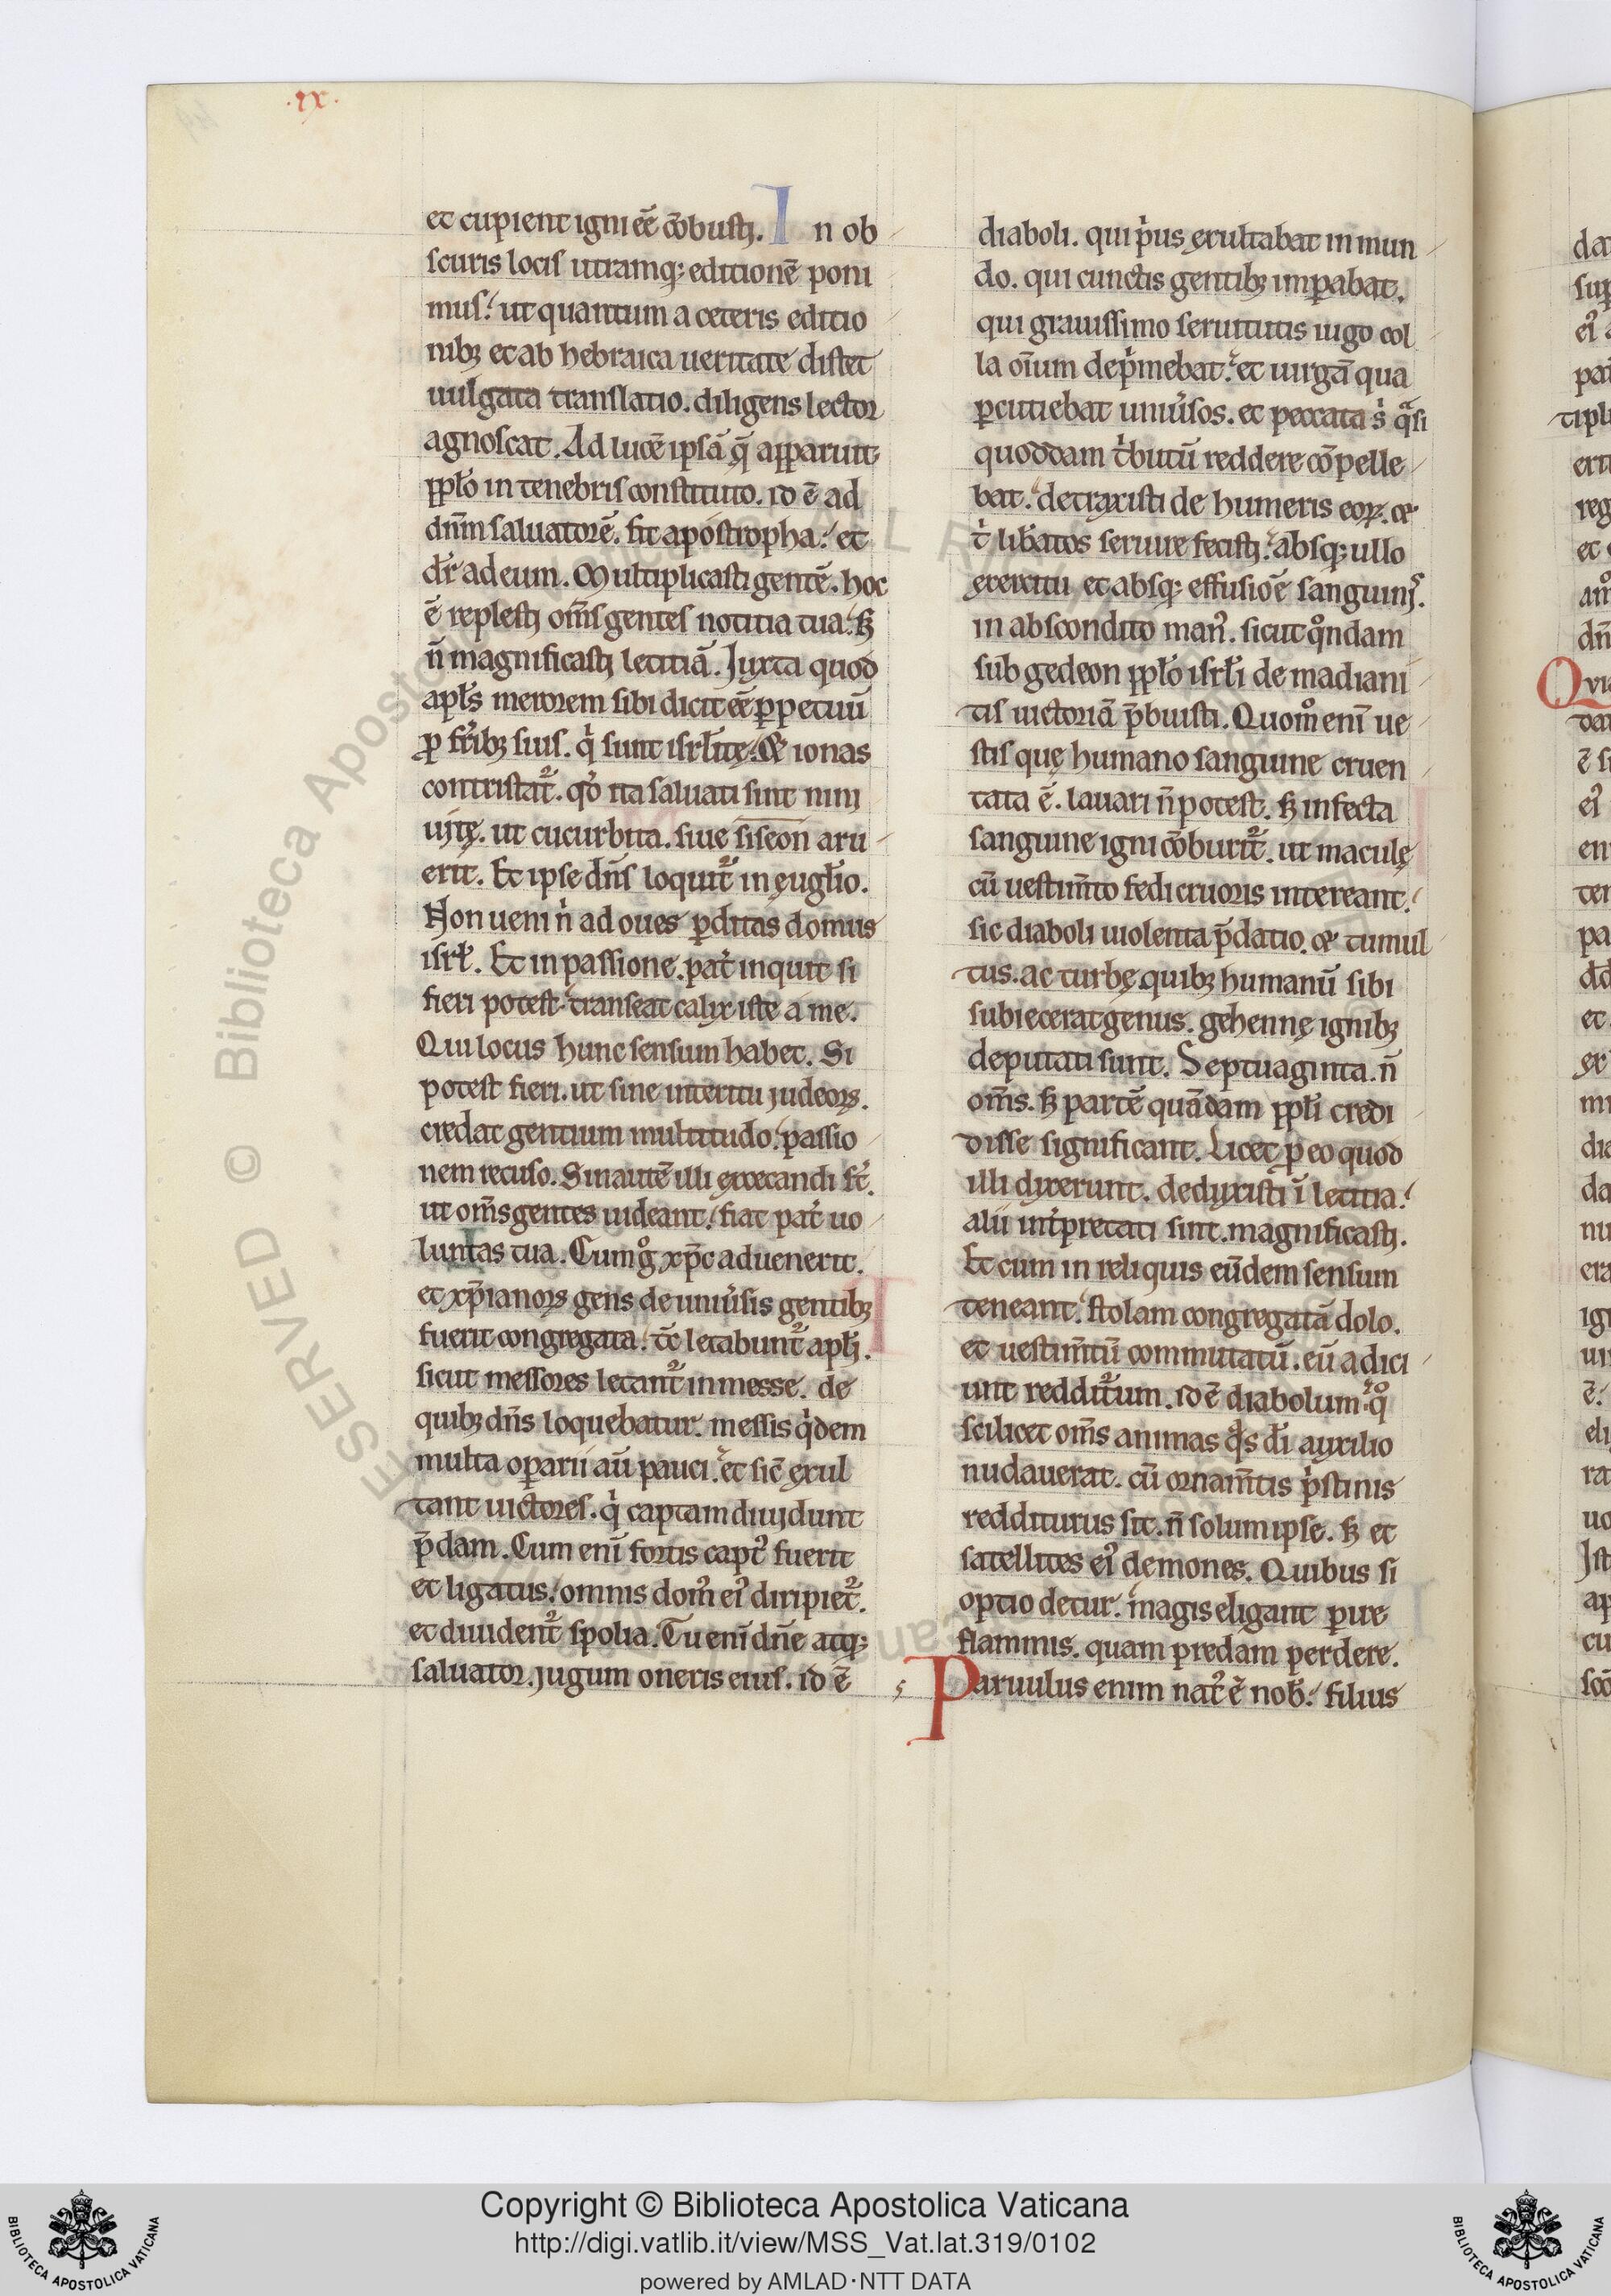 .ıx.
et cupient igni eē cōbusti. In ob
scuris locis utramq; editionē poni
mus. ut quantum a ceteris editio
nibꝫ et ab hebraica ueritate distet
uulgata translatio. diligens lector
agnoscat. Ad lucē ipsā q̄ apparuit
pplo in tenebris constituto. id ē ad
dnm saluatorē. fit apostropha. et
dr ad eum. Multiplicasti gentē. hoc
ē replesti oms gentes notitia tua. sꝫ
n̄ magnificasti letitiā. Juxta quod
apls merorem sibi dicit eē ꝑpetuū
ꝓ fribꝫ suis. qi sunt isrlitę. & ionas
contristat᷑. qđ ita saluati sint nini
uitę. ut cucurbita. siue siseon aru
erit. Et ipse dn̄s loquit᷑ in euglio.
Non ueni n ad oues ꝑditas domus
isrl. Et in passione. pat inquit si
fieri potest transeat calyx iste a me.
Qui locus hunc sensum habet. Si
potest fieri. ut sine interitu judeoꝝ.
credat gentium multitudo. passio
nem recuso. Sin autē illi excecandi st.
ut om̄s gentes uideant. fiat pat uo
luntas tua. Cum g xp̄c aduenerit.
et xp̄ianoꝝ gens de uniusis gentibꝫ
fuerit congregata. tc̄ letabunt᷑ apli.
sicut messores letant᷑ in messe. de
quibꝫ dn̄s loquebatur. messis qdem
multa oꝑarii aū pauci. et sic̄ exul
tant uictores. qi captam diuidunt
p̄dam. Cum eni fortis capt᷒ fuerit
et ligatus. omnis dom᷒ ei᷒ diripiet᷑.
et diuident᷑ spolia. Tu eni dn̄e atq;
saluator. jugum oneris eius. id ē
diaboli. qui pius exultabat in mun
do. qui cunctis gentibꝫ imꝑabat.
qui grauissimo seruitutis iugo col
la oīum depmebat. et uirgā qua
ꝑcutiebat uniusos. et peccata s qͣsi
quoddam tbutū reddere cōpelle
bat. detraxisti de humeris eoꝝ. &
t libatos seruire fecisti. absq; ullo
exercitu et absq; effusiōe sanguinis.
in abscondito man᷒. sicut qͦndam
sub gedeon pplo isrli de madiani
tis uictoriā p̄buisti. Quomͦ eni ue
stis quę humano sanguine cruen
tata ē. lauari n̄ potest. sꝫ infecta
sanguine igni cōburit᷑. ut maculę
cū uestimto fedi cruoris intereant.
sic diaboli uiolenta p̄datio. & tumul
tus. ac turbę quibꝫ humanū sibi
subiecerat genus. gehennę ignibꝫ
deputati sunt. Septuaginta. n̄
om̄s. sꝫ partē quādam ppli credi
disse significant. Licet ꝑ eo quod
illi dixerunt. deduxisti ī letitia.
alii intꝑpretati sint. magnificasti.
Et cum in reliquis eūdem sensum
teneant. stolam congregatā dolo.
et uestimtū commutatū. eū adici
unt reddit᷑um. id ē diabolum. qͦ
scilicet om̄s animas qͣs di auxilio
nudauerat. cū ornam̄tis pstinis
redditurus sit. n̄ solum ipse. sꝫ et
satellites ei᷒ demones. Quibus si
optio detur. magis eligant ꝑire
flammis. quam predam perdere.
Paruulus enim nat᷒ ē nob. filius
Copyright © Biblioteca Apostolica Vaticana
http://digi.vatlib.it/view/MSS_Vat.lat.319/0102
powered by AMLAD·NTT DATA
BIBLIOTECA APOSTOLICA VATICANA
BIBLIOTECA APOSTOLICA VATICANA